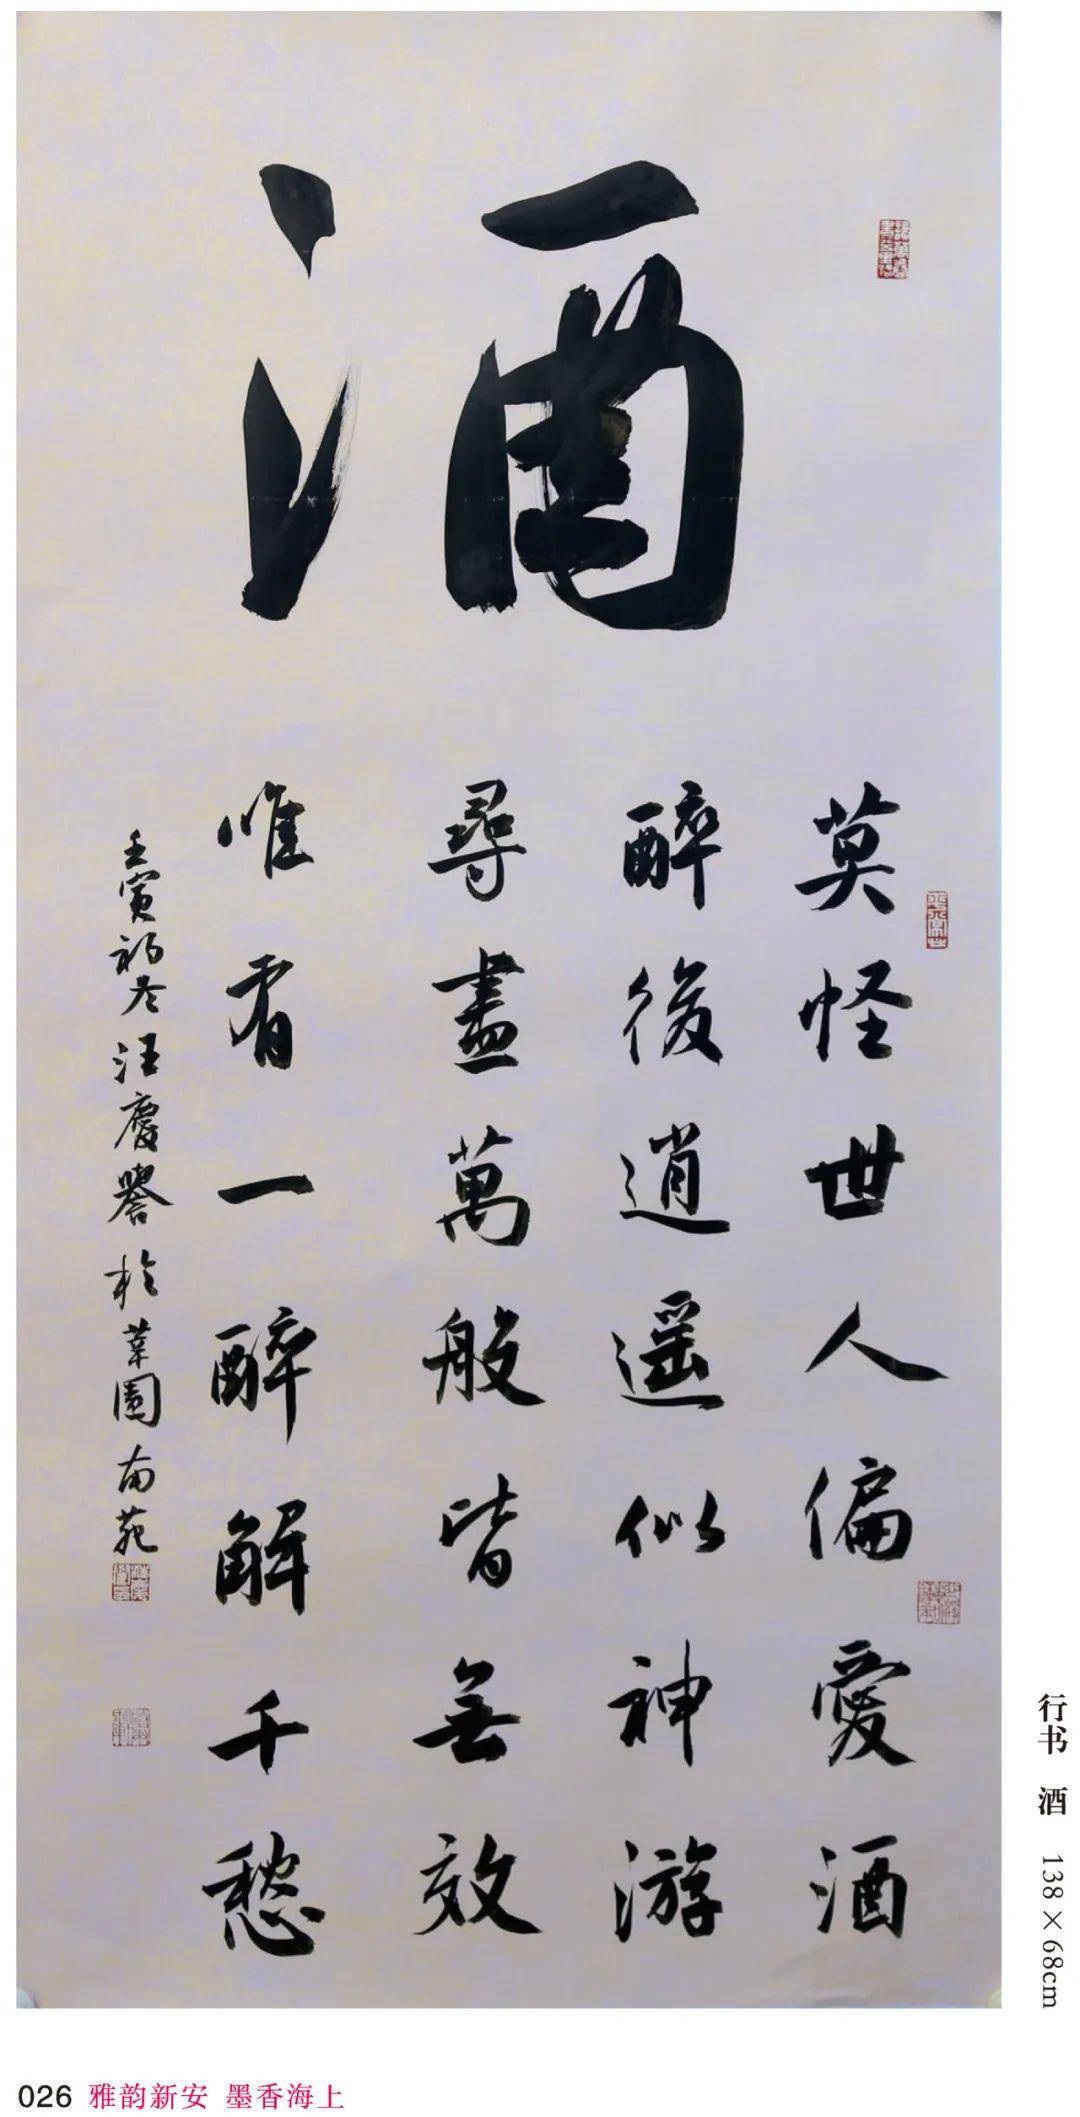 酒
莫怪世人偏愛酒
醉後逍遥似神游
尋盡萬般皆無效
唯有一醉解千愁
壬寅初冬汪慶譽於菜園南苑
行书 酒 138×68cm
026 雅韵新安 墨香海上